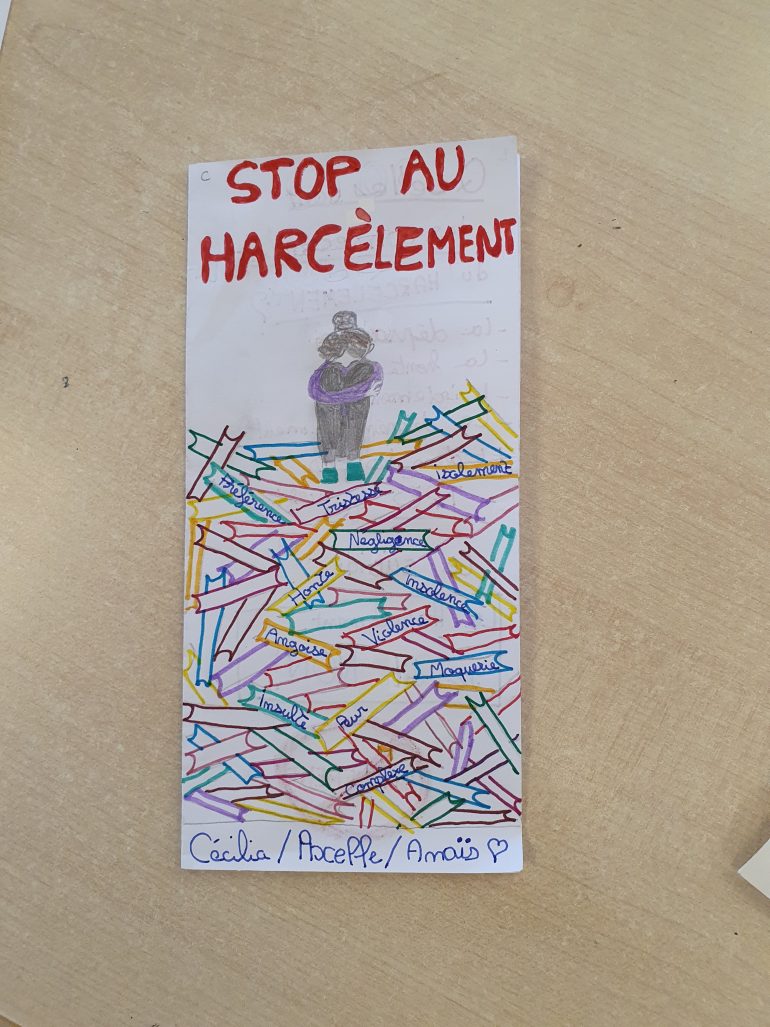 C
STOP AU
HARCÈLEMENT
isolement
Préférence
Tristesse
Negligence
Honte
Insolence
Violence
Angoise
Moquerie
Insulte
Peur
Complexe
Cécilia / Asceffe / Anaïs ♡